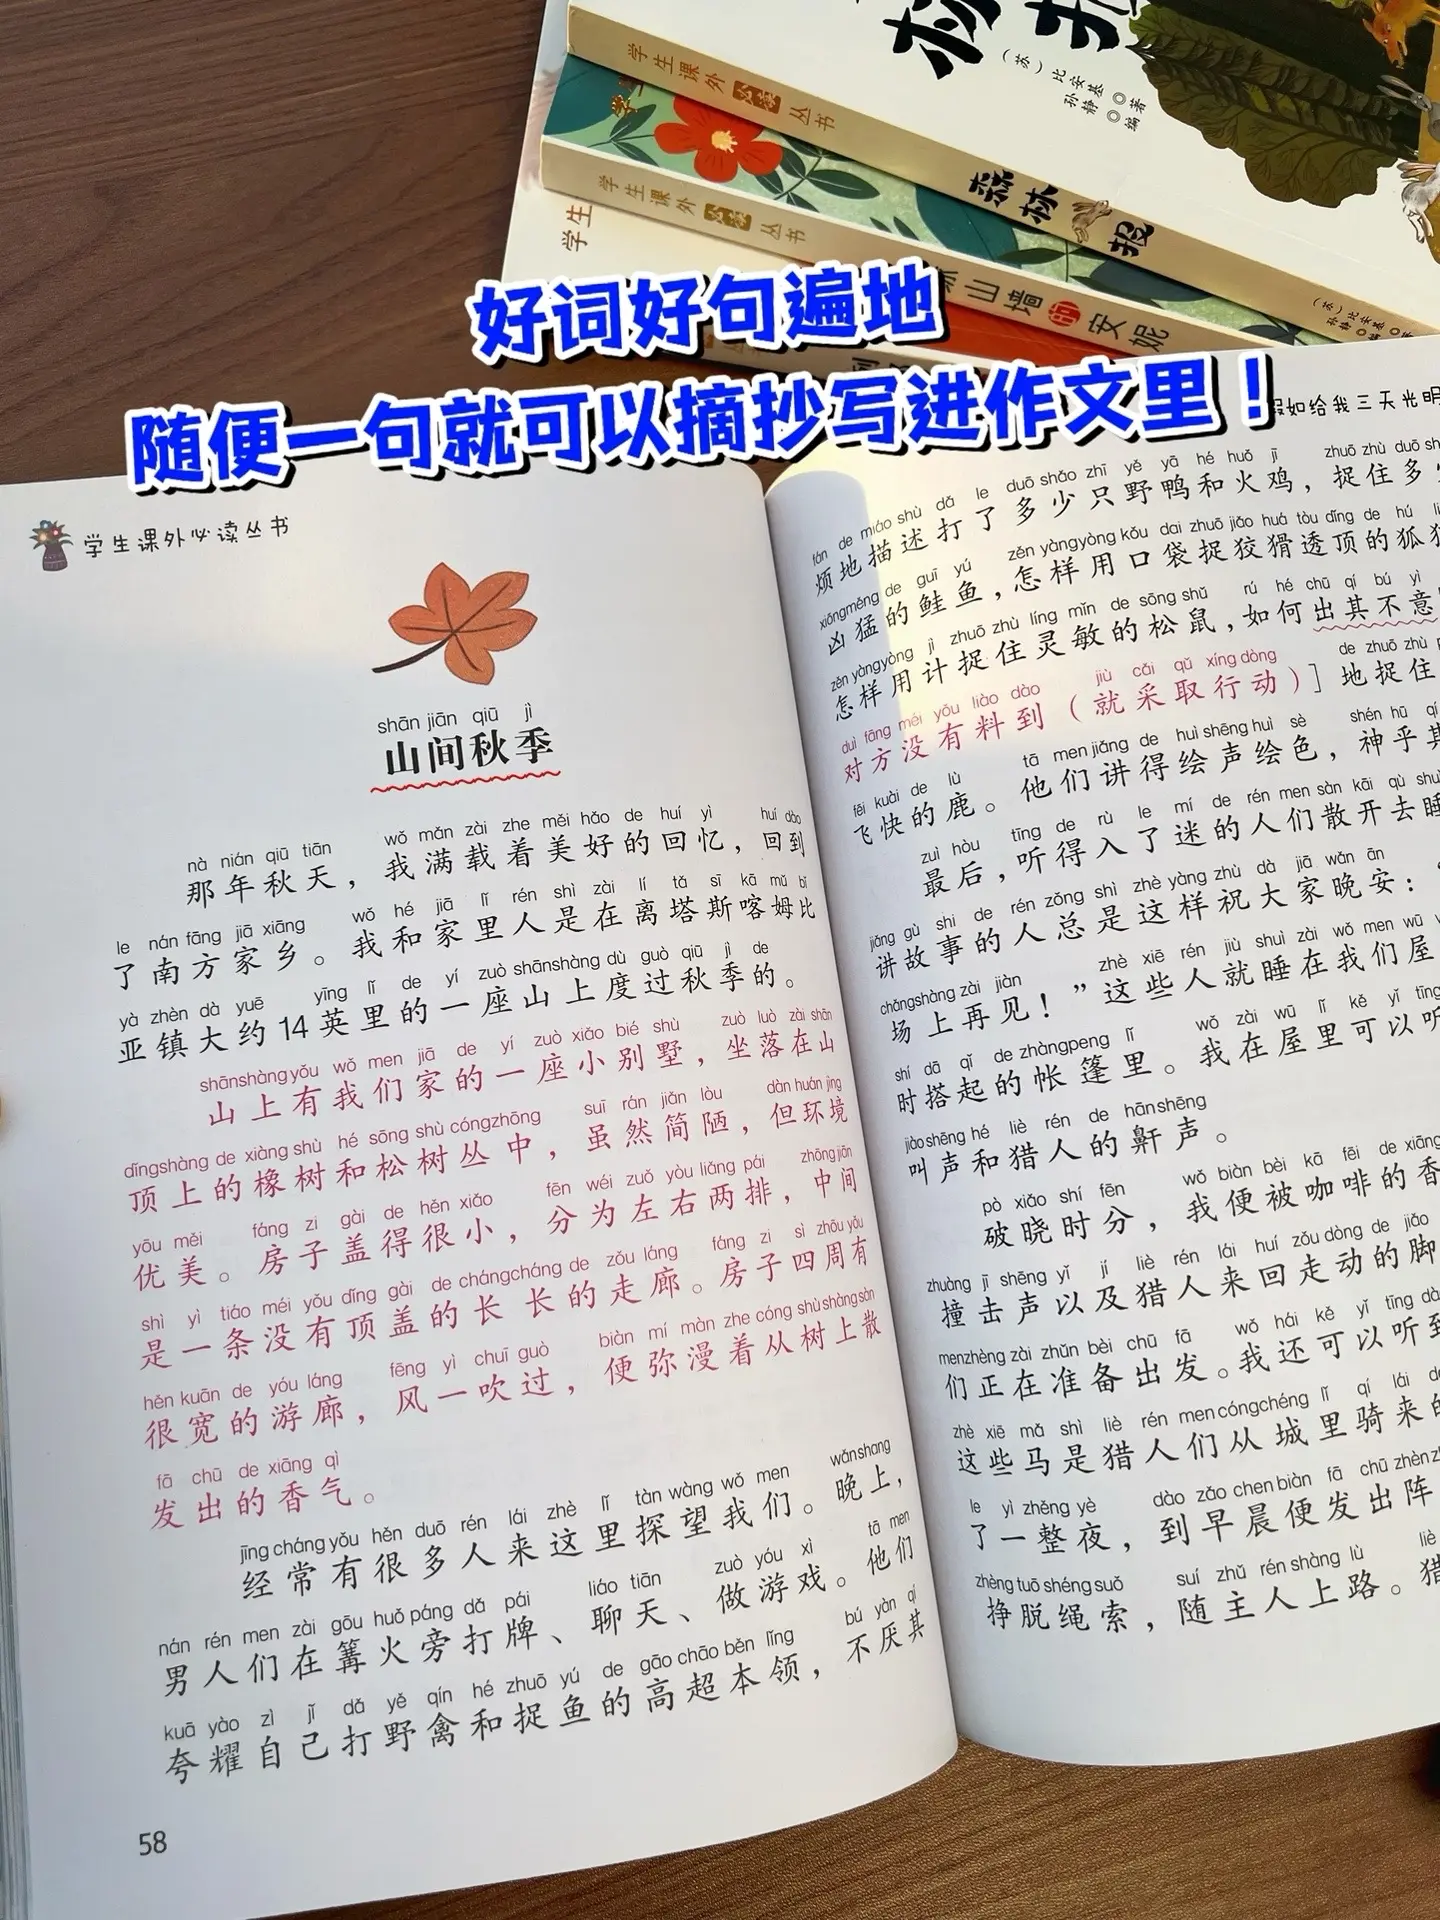 学生课外必读丛书
森林报
(苏)比安基◎
孙静◎编著
学生课外必读丛书
森林报
学生课外必读丛书
山墙的安妮
学生
好词好句遍地
随便一句就可以摘抄写进作文里！
学生课外必读丛书
shān jiān qiū jì
山间秋季
nà nián qiū tiān wǒ mǎn zài zhe měi hǎo de huí yì huí dào
那年秋天，我满载着美好的回忆，回到
le nán fāng jiā xiāng wǒ hé jiā lǐ rén shì zài lí tǎ sī kā mǔ bǐ
了南方家乡。我和家里人是在离塔斯喀姆比
yà zhèn dà yuē yīng lǐ de yí zuò shānshàng dù guò qiū jì de
亚镇大约14英里的一座山上度过秋季的。
shānshàng yǒu wǒ men jiā de yí zuò xiǎo bié shù zuò luò zài shān
山上有我们家的一座小别墅，坐落在山
dǐngshàng de xiàng shù hé sōng shù cóngzhōng suī rán jiǎn lòu dàn huán jìng
顶上的橡树和松树丛中，虽然简陋，但环境
yōu měi fáng zi gài de hěn xiǎo fēn wéi zuǒ yòu liǎng pái zhōng jiān
优美。房子盖得很小，分为左右两排，中间
shì yì tiáo méi yǒu dǐng gài de chángcháng de zǒu láng fáng zi sì zhōu yǒu
是一条没有顶盖的长长的走廊。房子四周有
hěn kuān de yóu láng fēng yì chuī guò biàn mí màn zhe cóng shù shàng sàn
很宽的游廊，风一吹过，便弥漫着从树上散
fā chū de xiāng qì
发出的香气。
jīng cháng yǒu hěn duō rén lái zhè lǐ tàn wàng wǒ men wǎnshang
经常有很多人来这里探望我们。晚上，
nán rén men zài gōu huǒ páng dǎ pái liáo tiān zuò yóu xì tā men
男人们在篝火旁打牌、聊天、做游戏。他们
kuā yào zì jǐ dǎ yě qín hé zhuō yú de gāo chāo běn lǐng bú yàn qí
夸耀自己打野禽和捉鱼的高超本领，不厌其
58
假如给我三天光明
fán de miáo shù dǎ le duō shǎo zhī yě yā hé huǒ jī zhuō zhù duō
烦地描述打了多少只野鸭和火鸡，捉住多
xiōngměng de guī yú zěn yàngyòng kǒu dai zhuō jiǎo huá tòu dǐng de hú
凶猛的鲑鱼，怎样用口袋捉狡猾透顶的狐
zěn yàngyòng jì zhuō zhù líng mǐn de sōng shǔ rú hé chū qí bú yì
怎样用计捉住灵敏的松鼠，如何出其不意
duì fāng méi yǒu liào dào jiù cǎi qǔ xíng dòng de zhuō zhù
对方没有料到（就采取行动）］地捉住
fēi kuài de lù tā men jiǎng de huì shēng huì sè shén hū qí
飞快的鹿。他们讲得绘声绘色，神乎其
zuì hòu tīng de rù le mí de rén men sàn kāi qù shuì
最后，听得入了迷的人们散开去睡
jiǎng gù shi de rén zǒng shì zhè yàng zhù dà jiā wǎn ān
讲故事的人总是这样祝大家晚安：“
chǎngshàng zài jiàn zhè xiē rén jiù shuì zài wǒ men wū
场上再见！”这些人就睡在我们屋
shí dā qǐ de zhàngpeng lǐ wǒ zài wū lǐ kě yǐ tīng
时搭起的帐篷里。我在屋里可以听
jiàoshēng hé liè rén de hānshēng
叫声和猎人的鼾声。
pò xiǎo shí fēn wǒ biàn bèi kā fēi de xiāng
破晓时分，我便被咖啡的香
zhuàng jī shēng yǐ jí liè rén lái huí zǒu dòng de jiǎo
撞击声以及猎人来回走动的脚
menzhèng zài zhǔn bèi chū fā wǒ hái kě yǐ tīng dào
们正在准备出发。我还可以听到
zhè xiē mǎ shì liè rén men cóngchéng lǐ qí lái de
这些马是猎人们从城里骑来的
le yì zhěng yè dào zǎo chen biàn fā chū zhèn
了一整夜，到早晨便发出阵
zhèng tuō shéng suǒ suí zhǔ rén shàng lù liè
挣脱绳索，随主人上路。猎